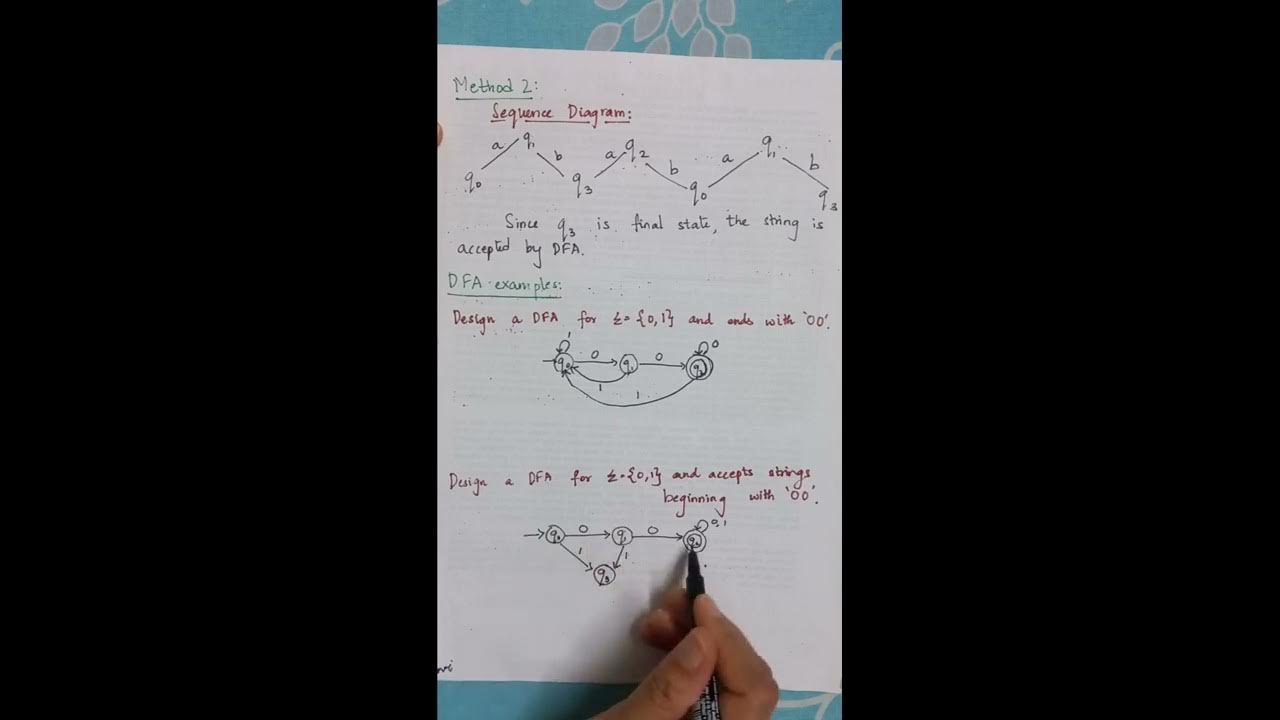 Method 2:
Sequence Diagram:
a q1 b a q2 b a q1 b
q0 q3 q0 q3
Since q3 is final state, the string is
accepted by DFA.
DFA examples:
Design a DFA for Σ={0,1} and ends with '00'.
1 0
q0 0 q1 0 q2
1 1
Design a DFA for Σ={0,1} and accepts strings
beginning with '00'.
0,1
q0 0 q1 0 q2
1 1
q3